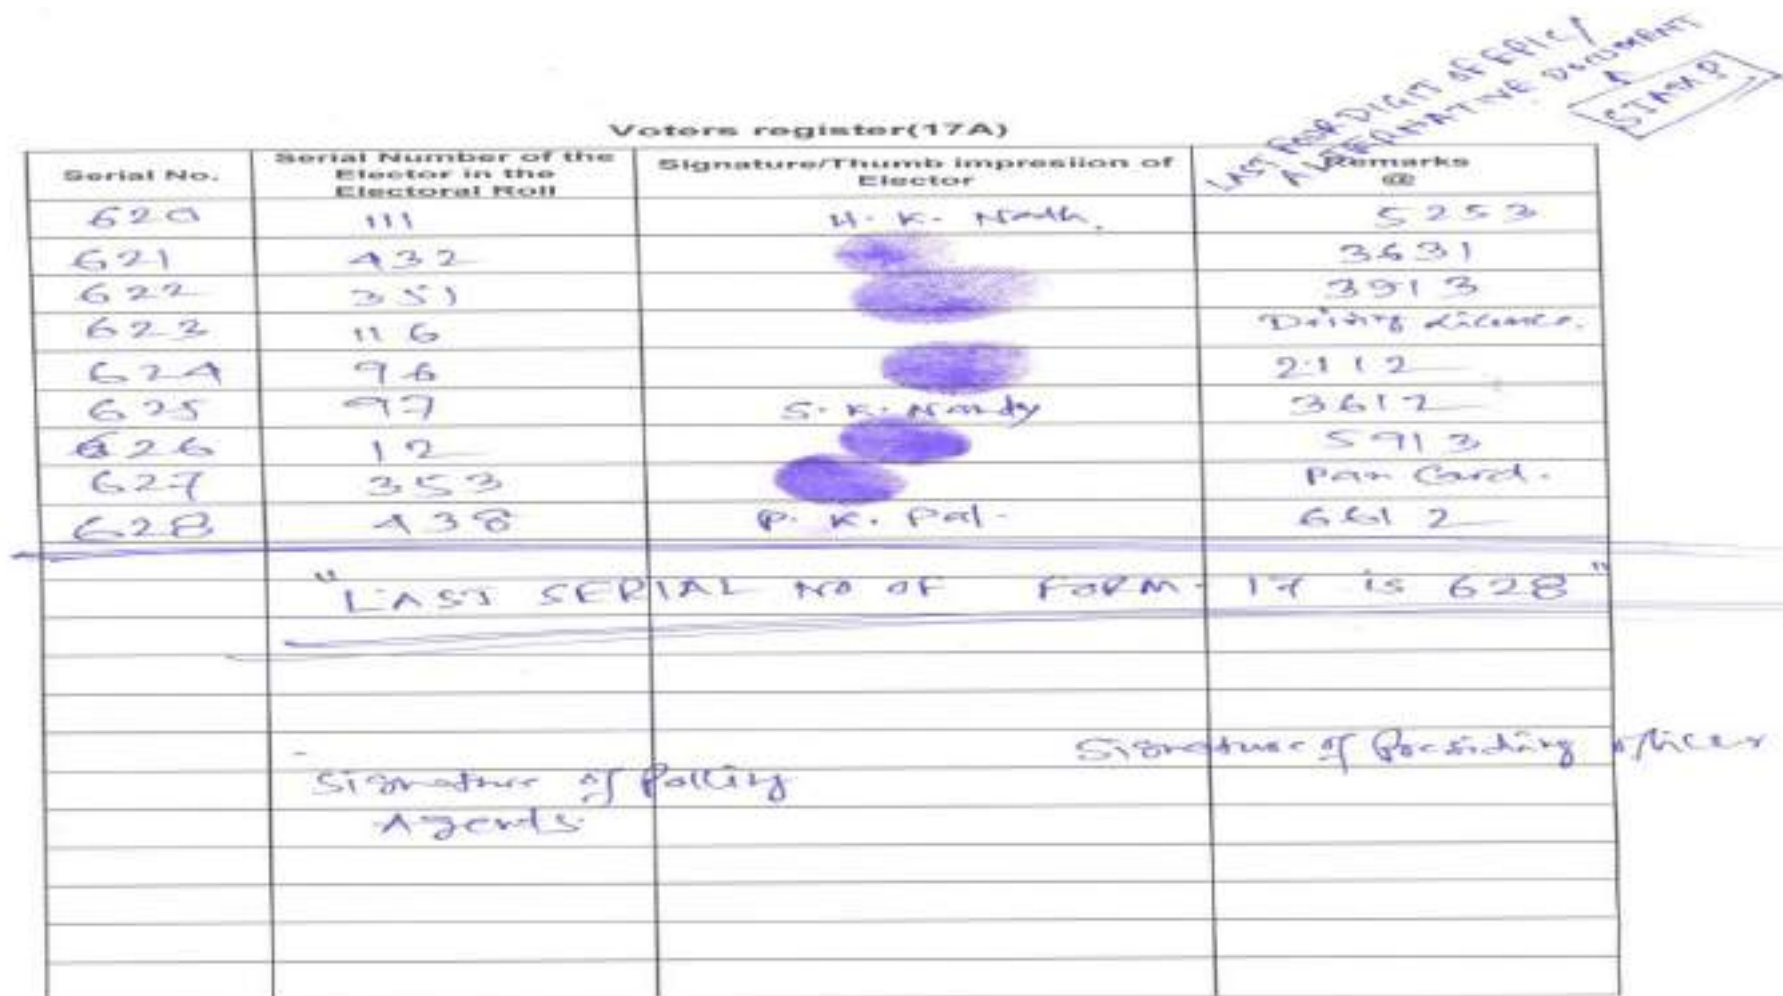 LAST FOUR DIGIT OF EPIC/
ALTERNATIVE DOCUMENT
STAMP
Voters register(17A)
Serial No. Serial Number of the Elector in the Electoral Roll Signature/Thumb impresiion of Elector Remarks @
620 111 H. K. Nath. 5253
621 432 3631
622 351 3913
623 116 Driving Licence.
624 96 2112
625 97 S. K. Nandy 3612
626 12 5913
627 353 Pan Card.
628 438 P. K. Pal. 6612
"LAST SERIAL NO OF FORM-17 is 628"
Signature of Presiding officer
Signature of Polling
Agents